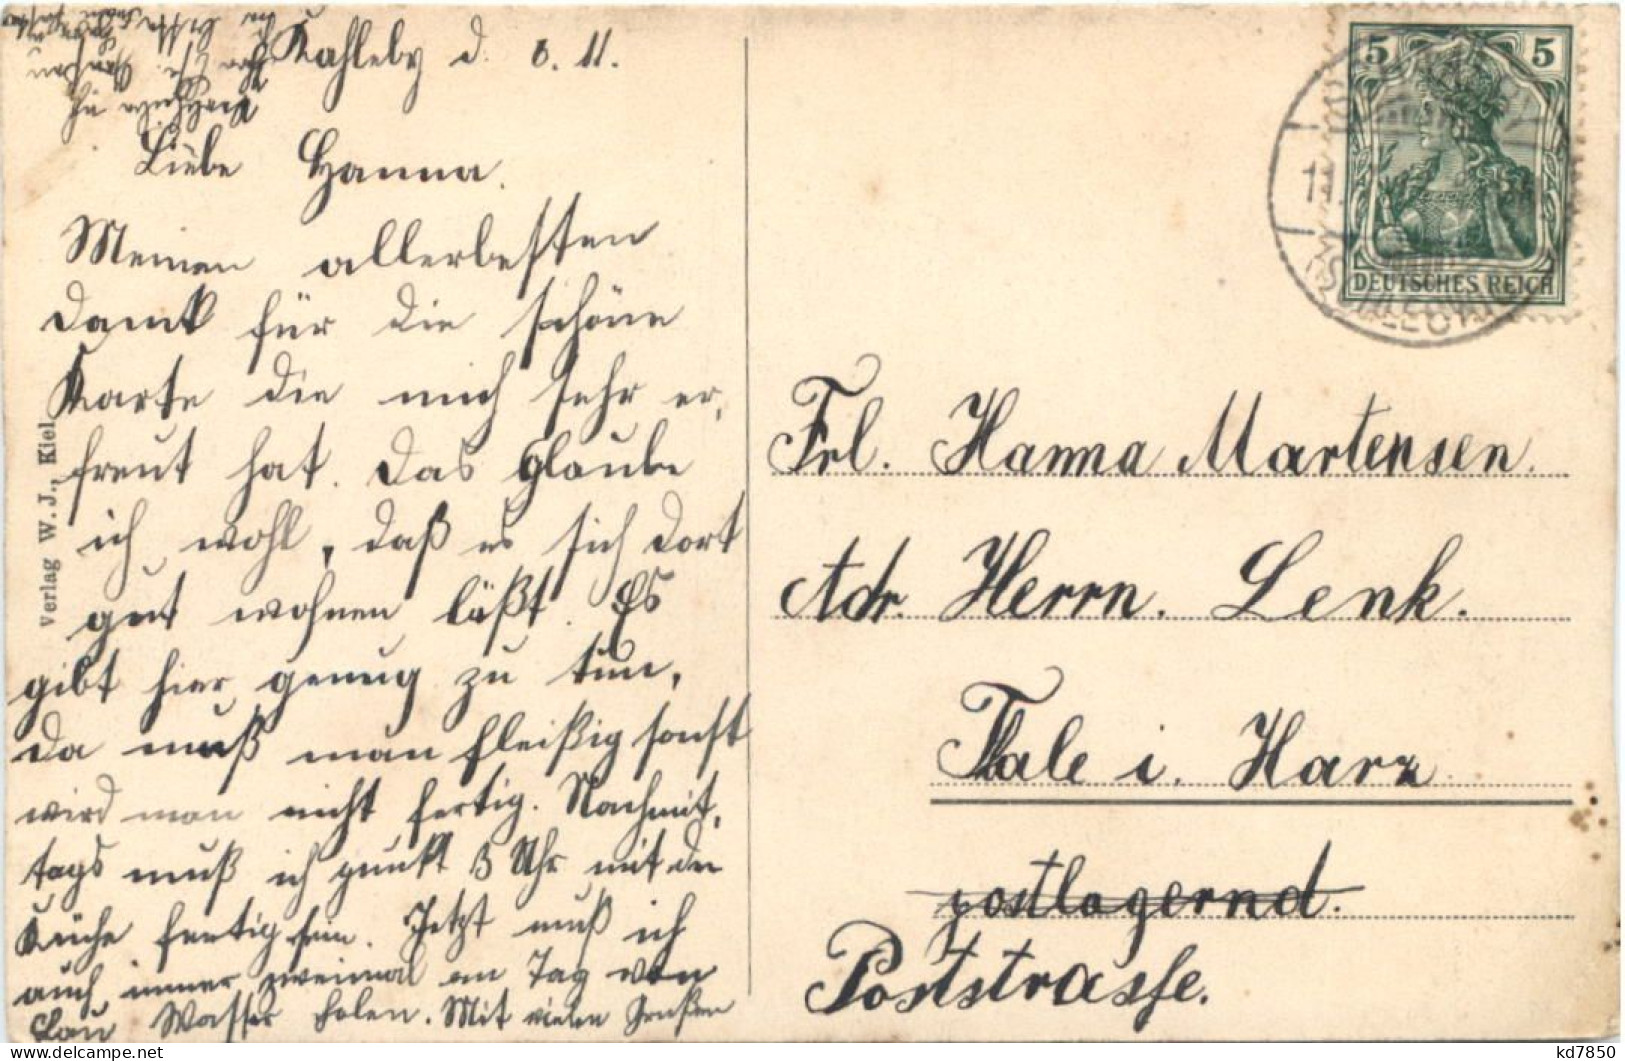 Kahleby d. 8. 11.
Liebe Hanna.
Meinen allerbesten
Dank für die schöne
Karte die mich sehr er,
freut hat. Das glaube
ich wohl, daß es sich dort
gut wohnen läßt. Es
gibt hier genug zu tun,
da muß man fleißig sonst
wird man nicht fertig. Nachmit,
tags muß ich punkt 3 Uhr mit der
Küche fertig sein. Jetzt muß ich
auch immer zweimal am Tag von
Wasser holen. Mit vielen Grüßen
Verlag W. J., Kiel.
5 5
DEUTSCHES REICH
11.
Frl. Hanna Martensen.
Adr. Herrn. Lenk.
Thale i. Harz
postlagernd.
Poststrasse.
kd7850